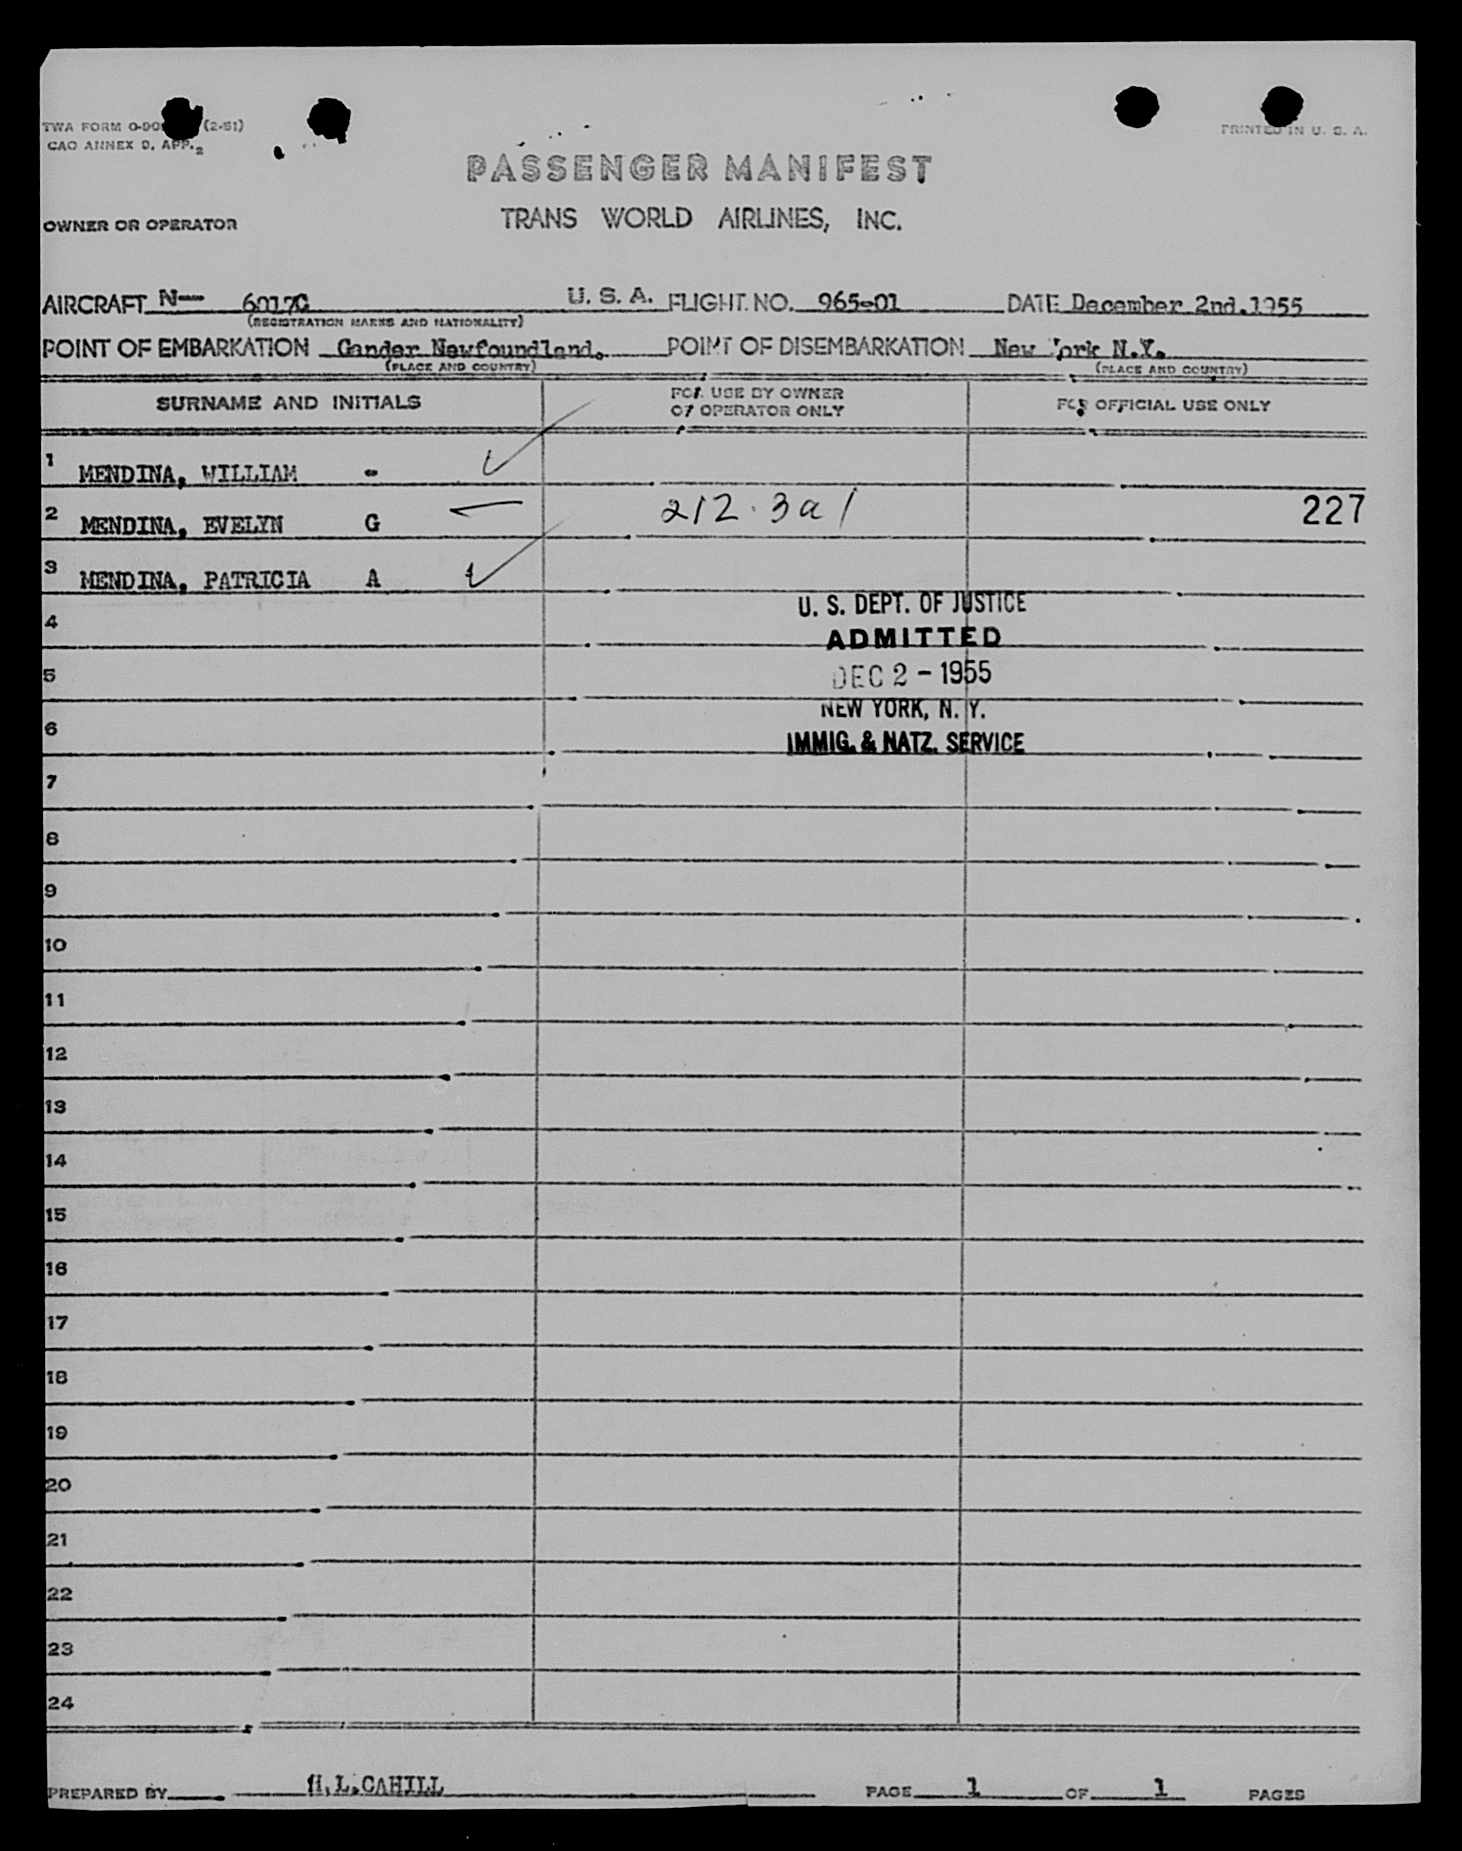 TWA FORM (2-51)
PRINTED IN U. S. A.
CAO ANNEX 9, APP. 2
PASSENGER MANIFEST
OWNER OR OPERATOR
TRANS WORLD AIRLINES, INC.
AIRCRAFT N— 6017C U. S. A. FLIGHT NO. 965-01 DATE December 2nd.1955
(REGISTRATION MARKS AND NATIONALITY)
POINT OF EMBARKATION Gander Newfoundland. POINT OF DISEMBARKATION New York N.Y.
(PLACE AND COUNTRY) (PLACE AND COUNTRY)
SURNAME AND INITIALS FOR USE BY OWNER OR OPERATOR ONLY FOR OFFICIAL USE ONLY
1 MENDINA, WILLIAM -
2 MENDINA, EVELYN G 212.3a1 227
3 MENDINA, PATRICIA A
U. S. DEPT. OF JUSTICE
4
ADMITTED
5 DEC 2 - 1955
NEW YORK, N. Y.
6
IMMIG. & NATZ. SERVICE
7
8
9
10
11
12
13
14
15
16
17
18
19
20
21
22
23
24
PREPARED BY H.L.CAHILL PAGE 1 OF 1 PAGES